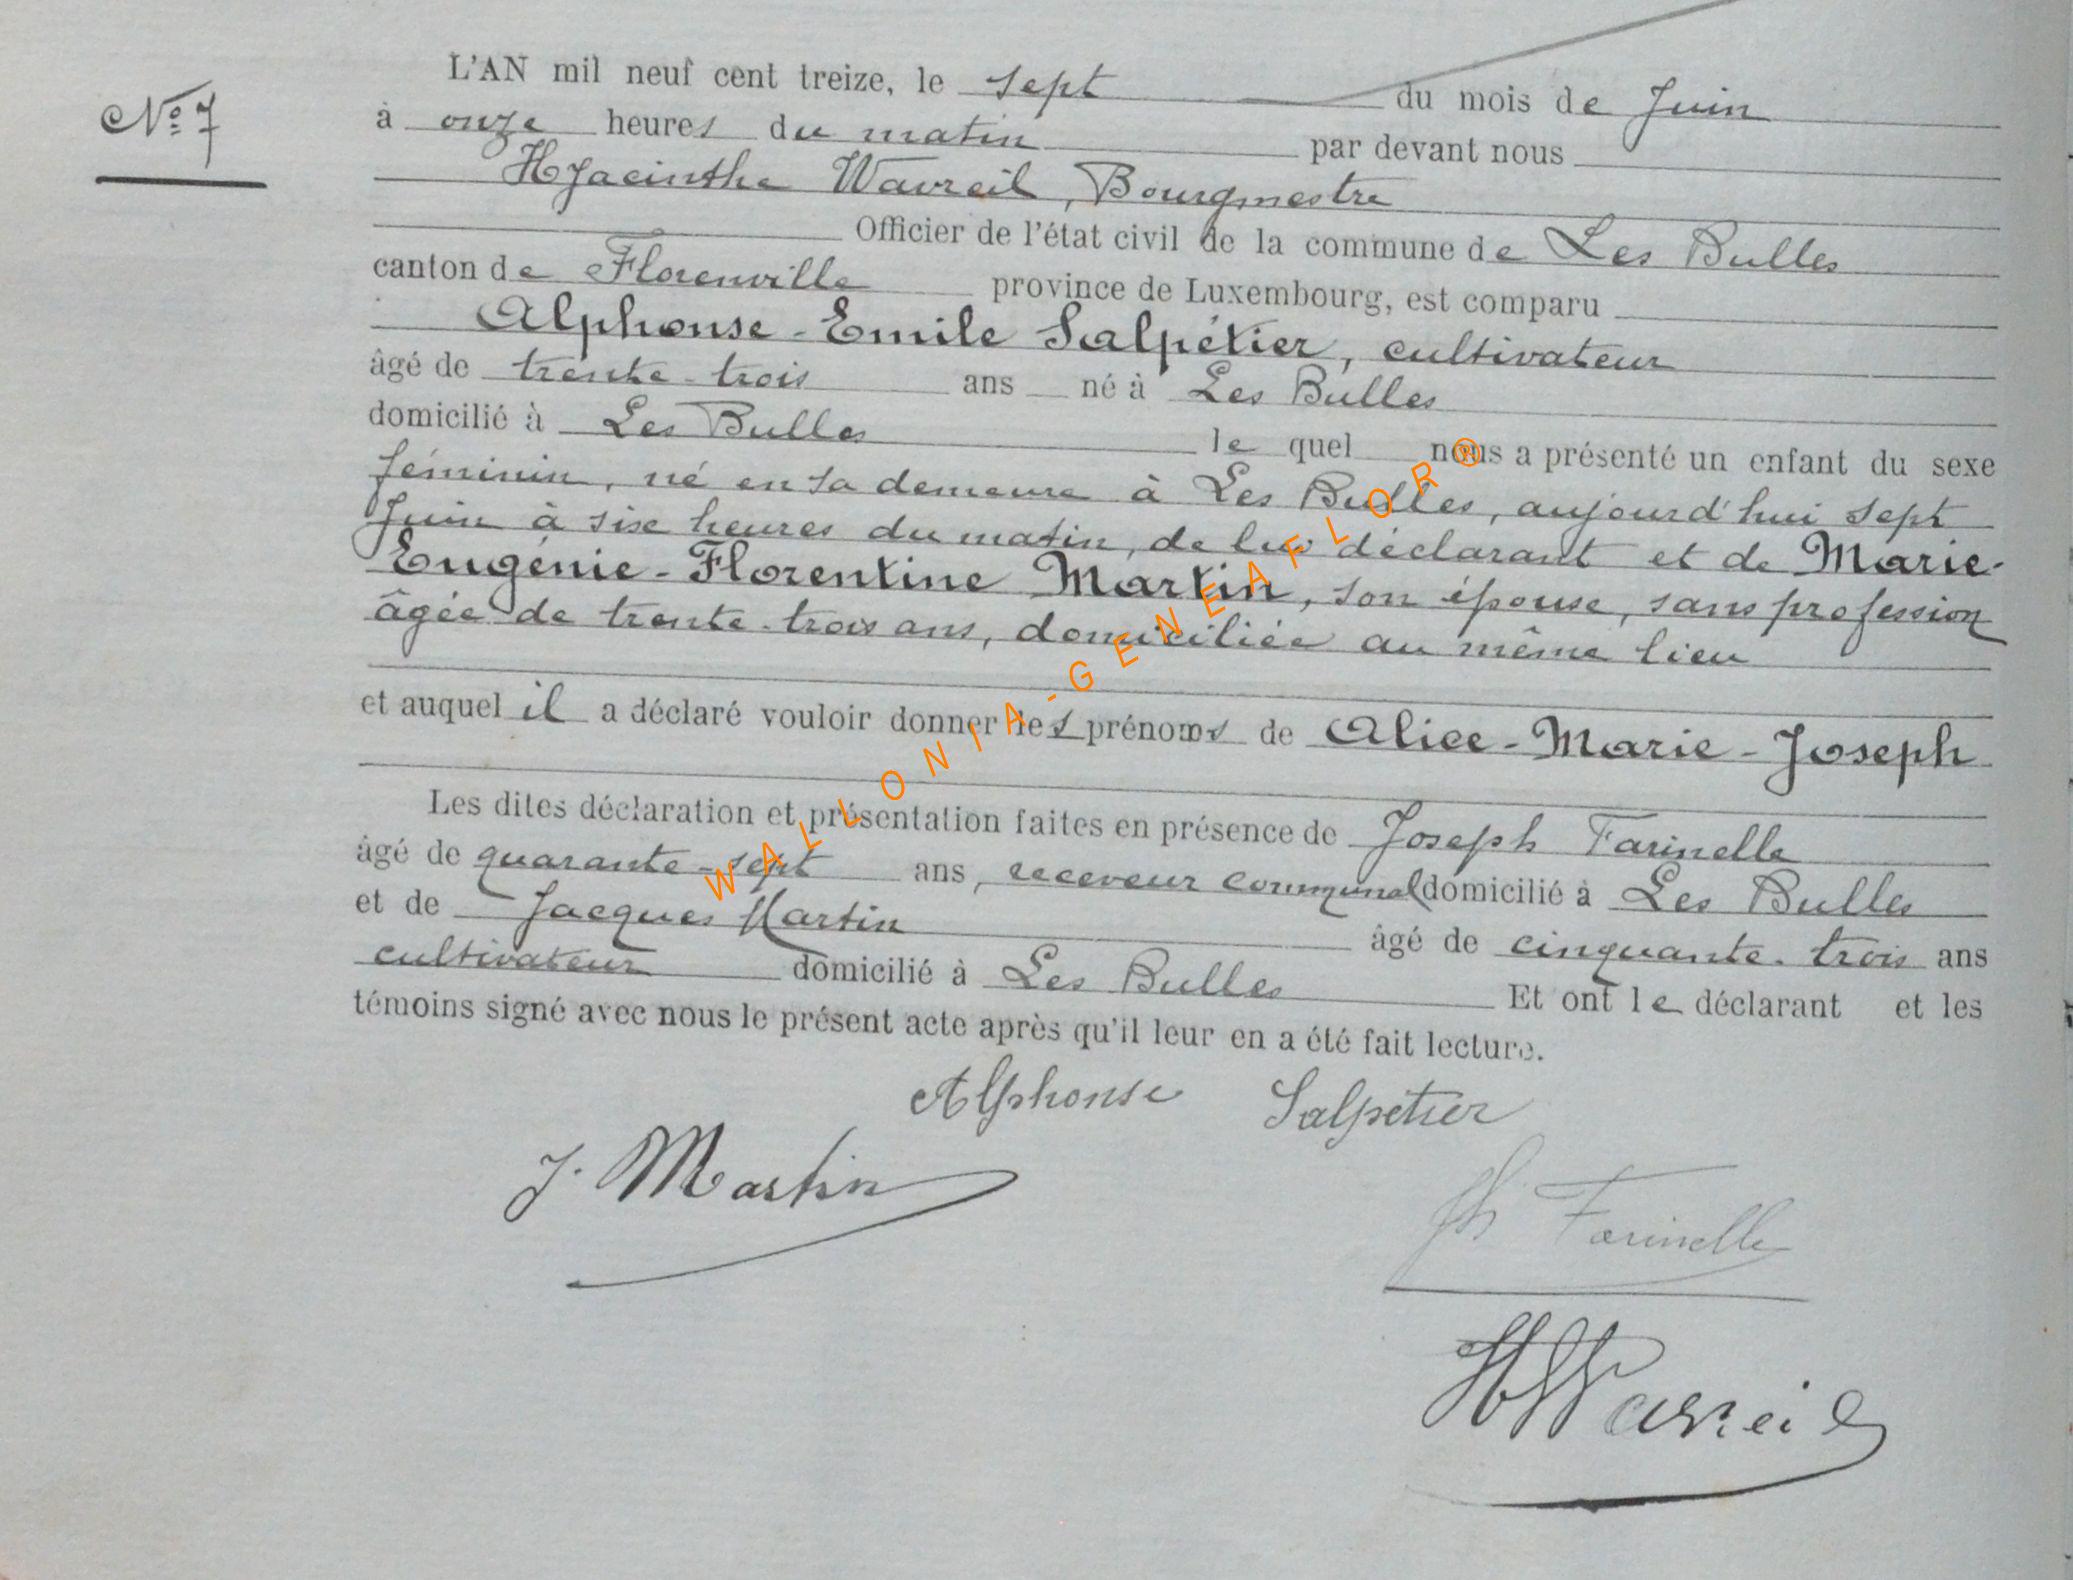 N° 7
L'AN mil neuf cent treize, le sept du mois de Juin
à onze heures du matin par devant nous
Hyacinthe Wavreil, Bourgmestre
Officier de l'état civil de la commune de Les Bulles
canton de Florenville province de Luxembourg, est comparu
Alphonse-Emile Salpétier, cultivateur
âgé de trente-trois ans né à Les Bulles
domicilié à Les Bulles le quel nous a présenté un enfant du sexe
féminin, né en sa demeure à Les Bulles, aujourd'hui sept
Juin à six heures du matin, de lui déclarant et de Marie-
Eugénie-Florentine Martin, son épouse, sans profession
âgée de trente-trois ans, domiciliée au même lieu
et auquel il a déclaré vouloir donner les prénoms de Alice-Marie-Joseph
Les dites déclaration et présentation faites en présence de Joseph Farinelle
âgé de quarante-sept ans, receveur communal domicilié à Les Bulles
et de Jacques Martin âgé de cinquante-trois ans
cultivateur domicilié à Les Bulles Et ont le déclarant et les
témoins signé avec nous le présent acte après qu'il leur en a été fait lecture.
Alphonse Salpétier
J. Martin
Jh Farinelle
H Wavreil
WALLONIA-GENEAFLOR®